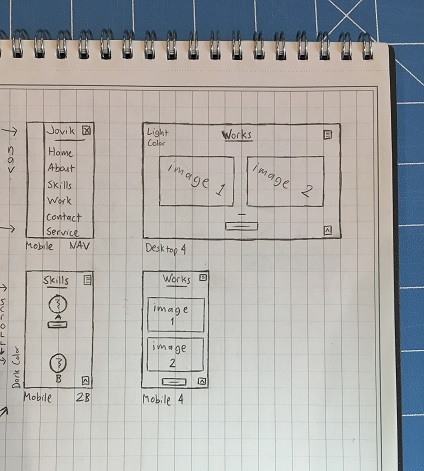 Jovik
Home
About
Skills
Work
Contact
Service
Mobile NAV
nav
Light
Color
Works
image 1
image 2
Desktop 4
Skills
A
B
Dark Color
Mobile 2B
Works
image
1
image
2
Mobile 4